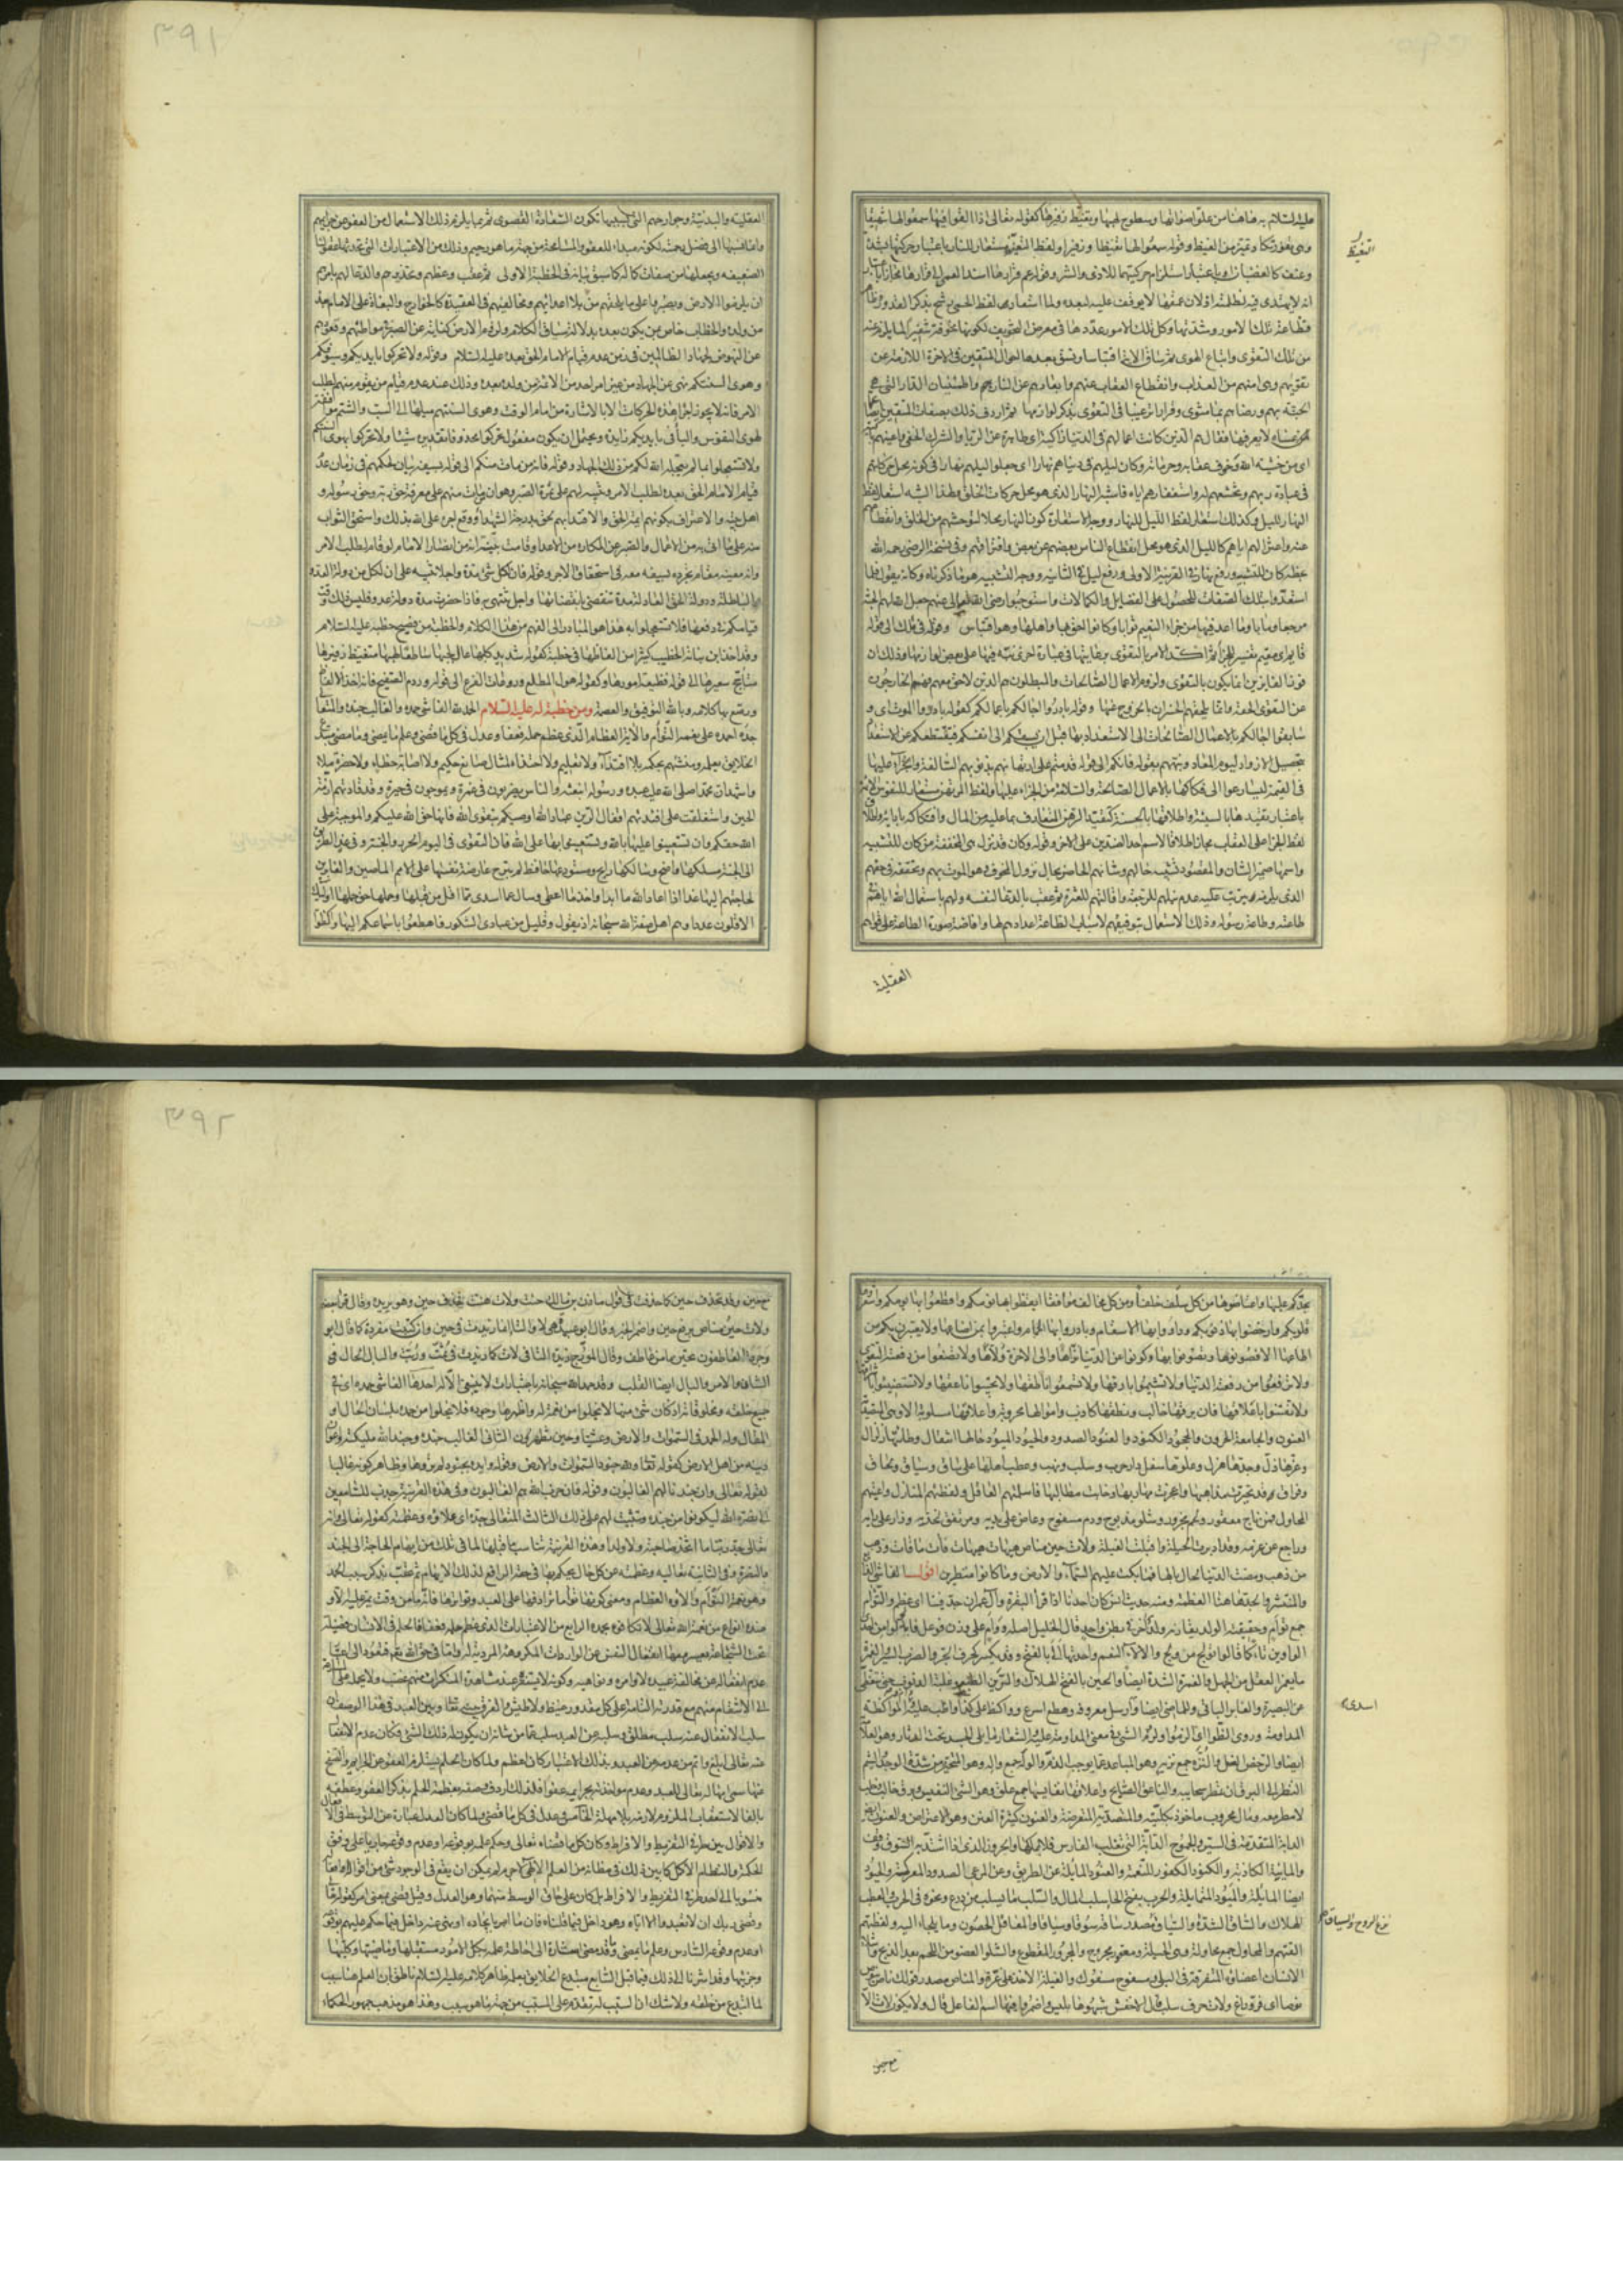 عليه السلام به هاهنا من علو اصواتها وسطوح لهبها وتغيظ زفيرها كقوله تعالى اذا القوا فيها سمعوا لها شهيقا
التغيظ
وهى تفور تكاد تميز من الغيظ وقوله سمعوا لها تغيظا وزفيرا ولفظ التغيظ مستعار للنار باعتبار حركتها بشدة
وعنف كالغضبان او باعتبار استلزام حركتهما للاذى والشر وقوله عم قرارها اسند العمى الى قرارها مجازا
انه لا يهتدى فيه لظلمته او لان عمقها لا يوقف عليه لبعده ولما استعار لفظ الحمى رشح بذكر القدور
فظاعة تلك الامور وشدتها وكل تلك الامور عددها فى معرض التخويف لكونها مخوفة
من تلك التقوى واتباع الهوى ثم ساق الاية اقتباسا ونسق بعدها احوال المتقين فى الاخرة اللازمة عن
تقويهم وهى امنهم من العذاب وانقطاع العقاب عنهم وابعادهم عن النار هم واطمينان الدار التى هى
الجنة بهم ورضاهم بها مثوى وقرارا ترغيبا فى التقوى بذكر لوازمها ثم اردف ذلك بصفات المتقين ايضا
لا يعرفها فقال هم الذين كانت اعمالهم فى الدنيا زاكية اى طاهرة عن الرياء والشرك الخفى واعينهم باكية
اى من خشية الله وخوف عقابه وحرمانه وكان ليلهم فى دنياهم نهارا اى جعلوا ليلهم نهارا فى كونه محل حركاتهم
فى عبادة ربهم وتخشعهم له واستغفارهم اياه فاشبه النهار الذى هو محل حركات الخلق ولهذا الشبه استعار لفظ
النهار لليل وكذلك استعار لفظ الليل للنهار ووجه الاستعارة كون النهار محلا لتوحشهم من الخلق وانقطاعهم
عنه واعتزالهم اياهم كالليل الذى هو محل انقطاع الناس بعضهم عن بعض وافتراقهم وفى نسخة الرضى رحمه الله
بخطه كان للتشبيه ورفع نهار فى القرينة الاولى ورفع ليل فى الثانية ووجه التشبيه هو ما ذكرناه وكانه يقول فلما
استعدوا بتلك الصفات للحصول على الفضايل والكمالات واستوجبوا رضى الله تعالى عنهم جعل الله لهم الجنة
مرجعا ومابا وما اعد فيها من جزاء النعيم ثوابا وكانوا احق بها واهلها وهو اقتباس وقوله فى ملك الى قوله
قايم اى مقيم تفسير للجزاء ثم اكد الامر بالتقوى برعايتها فى عبارة اخرى نبه فيها على بعض لوازمها وذلك ان
فوز الفايزين انما يكون بالتقوى ولزوم الاعمال الصالحات والمبطلون هم الذين لا حق معهم فهم الخارجون
عن التقوى الحقة وانما يلحقهم الخسران بالخروج عنها وقوله بادروا اجالكم باعمالكم كقوله بادروا الموت اى و
سابقوا اجالكم بالاعمال الصالحات الى الاستعداد بها قبل ان يسبقكم الى انفسكم فيقطعكم عن الاستعداد
بتحصيل الازواد ليوم المعاد ونبههم بقوله فانكم الى قوله قدمتم على ارتهانهم بذنوبهم السالفة والجزاء عليها
فى القيمة ليسارعوا الى فكاكها بالاعمال الصالحة والسلامة من الجزاء عليها ولفظ المرتهن مستعار للنفوس الاثمة
باعتبار تقيدها بالسيئة واطلاقها بالحسنة كتقييد الرهن المتعارف بما عليه من المال وافتكاكه بادائه واطلاق
لفظ الجزاء على العقاب مجاز اطلاقا لاسم احد الضدين على الاخر وقوله وكان قد نزل هى المخففة من كان للتشبيه
واسمها ضمير الشان والمقصود تشبيه حالهم وشانهم الحاضر بحال نزول المخوف وهو الموت بهم وتحققه فى حقهم
الذى يلزمه ويترتب عليه عدم نيلهم للرجعة واقالتهم للعثرة ثم عقب بالدعاء لنفسه ولهم باستعمال الله اياهم فى
طاعته وطاعة رسوله وذلك الاستعمال بتوفيقهم لاسباب الطاعة واعدادهم لها وافاضة صورة الطاعة على قواهم
العقلية
٣٩١
العقلية والبدنية وجوارحهم التى بسببها تكون السعادة القصوى ثم بما يلزم ذلك الاستعمال من العفو عن جرايمهم
وانما نسبها الى فضل رحمته لكونه مبداء للعفو والمسامحة من جهة ما هو رحيم وذلك من الاعتبارات التى تحدثها عقولنا
الضعيفة ويجعلها من صفات كماله كما سبق بيانه فى الخطبة الاولى ثم عقب وعظهم وتحذيرهم والدعاء لهم بامرهم
ان يلزموا الارض ويصبروا على ما يلحقهم من بلاء اعدائهم ومخالفيهم فى العقيدة كالخوارج والبغاة على الامام بعده
من ولده والخطاب خاص بمن يكون بعده بدلالة سياق الكلام ولزوم الارض كناية عن الصبر فى مواطنهم وقعودهم
عن النهوض لجهاد الظالمين فى زمن عدم قيام الامام الحق بعده عليه السلام وقوله ولا تحركوا بايديكم وسيوفكم
وهوى السنتكم نهى عن الجهاد من غير امر احد من الائمة من ولده بعده وذلك عند عدم قيام من يقوم منهم لطلب
الامر فانه لا يجوز اجراء هذه الحركات الا بالاشارة من امام الوقت وهوى السنتهم ميلها الى السب والشتم موافقة
لهوى النفوس والباء فى بايديكم زايدة ويحتمل ان يكون مفعول تحركوا محذوفا تقديره شيئا ولا تحركوا بهوى السنتكم
ولا تستعجلوا بما لم يعجله الله لكم من ذلك الجهاد وقوله فانه من مات منكم الى قوله بسيفه بيان لحكمهم فى زمان عدم
قيام الامام الحق بعده لطلب الامر وتنبيه لهم على ثمرة الصبر وهو ان من مات منهم على معرفة حق ربه وحق رسوله و
اهل بيته والاعتراف بكونهم ائمة الحق والاقتداء بهم لحق بدرجة الشهداء ووقع اجره على الله بذلك واستحق الثواب
منه على ما اتى به من الاعمال والصبر عن المكاره من الاعداء وقامت نيته انه من انصار الامام لو قام لطلب الامر
وانه معينه مقام تجرده بسيفه معه فى استحقاق الاجر وقوله فان لكل شئ مدة واجلا تنبيه على ان لكل من دولة العدو
الباطلة ودولة الحق العادلة مدة تنقضى بانقضائها واجلا تنتهى به فاذا حضرت مدة دولة عدو فليس ذلك وقت
قيامكم فى دفعها فلا تستعجلوا به هذا هو المتبادر الى الفهم من هذا الكلام والخطبة من فصيح خطبه عليه السلام
وقد اخذ ابن نباتة الخطيب كثيرا من الفاظها فى خطبه كقوله شديد كلبها عال لجبها ساطع لهبها متغيظ زفيرها
متاجج سعيرها الى قوله فظيعة امورها وكقوله هول المطلع وروعات الفزع الى قوله وردم الصفيح فانه اخذ الالفاظ
ورصع بها كلامه وبالله التوفيق والعصمة ومن خطبة له عليه السلام الحمد لله الفاشى حمده والغالب جنده والمتعالى
جده احمده على نعمه التوام والائه العظام الذى عظم حلمه فعفا وعدل فى كل ما قضى وعلم ما يمضى وما مضى مبتدع
الخلايق بعلمه ومنشئهم بحكمه بلا اقتداء ولا تعليم ولا احتذاء لمثال صانع حكيم ولا اصابة خطاء ولا حضرة ملاء
واشهد ان محمدا صلى الله عليه عبده ورسوله ابتعثه والناس يضربون فى غمرة ويموجون فى حيرة وقد قادتهم ازمة
الحين واستغلقت على افئدتهم اقفال الرين عباد الله اوصيكم بتقوى الله فانها حق الله عليكم والموجبة على
الله حقكم وان تستعينوا عليها بالله وتستعينوا بها على الله فان التقوى فى اليوم الحرز والجنة وفى غد الطريق
الى الجنة مسلكها واضح وسالكها رابح ومستودعها حافظ لم تبرح عارضة نفسها على الامم الماضين والغابرين
لحاجتهم اليها غدا اذا اعاد الله ما ابدا واخذ ما اعطى وسال عما اسدى فما اقل من قبلها وحملها حق حملها اولئك
الاقلون عددا وهم اهل صفة الله سبحانه اذ يقول وقليل من عبادى الشكور فاهطعوا باسماعكم اليها وكظوا
بجدكم عليها واعتاضوها من كل سلف خلفا ومن كل مخالف موافقا ايقظوا بها نومكم واقطعوا بها يومكم واشعروها
قلوبكم وارحضوا بها ذنوبكم وداووا بها الاسقام وبادروا بها الحمام واعتبروا بمن اضاعها ولا يعتبرن بكم من
اطاعها الا فصونوها وتصونوا بها وكونوا عن الدنيا نزاها والى الاخرة ولاها ولا تضعوا من رفعته التقوى
ولا ترفعوا من رفعته الدنيا ولا تشيموا بارقها ولا تسمعوا ناطقها ولا تجيبوا ناعقها ولا تستضيئوا باشراقها
ولا تفتنوا باعلاقها فان برقها خالب ونطقها كاذب واموالها محروبة واعلاقها مسلوبة الا وهى المتصدية
العنون والجامحة الحرون والجحود الكنود والعنود الصدود والحيود الميود حالها انتقال ووطاتها زلزال
وعزها ذل وجدها هزل وعلوها سفل دار حرب وسلب ونهب وعطب اهلها على ساق وسياق ولحاق
وفراق قد تحيرت مذاهبها واعجزت مهاربها وخابت مطالبها فاسلمتهم المعاقل ولفظتهم المنازل واعيتهم
المحاول فمن ناج معقور ولحم مجزور وشلو مذبوح ودم مسفوح وعاض على يديه ومرتفق بخديه وزار على رايه
وراجع عن عزمه وقد ادبرت الحيلة واقبلت الغيلة ولات حين مناص هيهات هيهات فات ما فات وذهب
من ذهب ومضت الدنيا لحال بالها فما بكت عليهم السماء والارض وما كانوا منظرين اقول الفاشى الذايع
والمنتشر والجد هاهنا العظمة ومنه حديث انس كان احدنا اذا قرأ البقرة وآل عمران جد فينا اى عظم والتوام
جمع توام وحقيقته الولد يقارنه ولد اخر فى بطن واحد قال الخليل اصله ووام على وزن فوعل فابدلوا من احدى
الواوين تاء كما قالوا تولج من ولج والالاء النعم واحدتها الا بالفتح وقد يكسر كحرف الجر والضرب السير والغمرة
ما يغمر العقل من الجهل والغمرة الشدة ايضا والحين بالفتح الهلاك والرين الطبع وغلبة الذنوب حتى تغطى
عين البصيرة والغابر الباقى والماضى ايضا وارسل معروف وهطع اسرع وواكظ على كذا واظب عليه والمواكظة
اسدى
المداومة وروى انظوا اى الزموا ولزوم الشئ فى معنى المداومة عليه والشعار ما يلى الجسد تحت الدثار وهو العلامة
ايضا والرحض الغسل والنزه جمع نزيه وهو المباعد عما يوجب الذم والوله جمع واله وهو المتحير من شدة الوجد والشم
النظر الى البرق اين يمطر سحابه والناعق الصايح واعلاقها نفايسها جمع علق وهو الشئ النفيس وبرق خالب وخلب
لا مطر معه ومال محروب ماخوذ بكليته والمتصدية المتعرضة والعنون كثيرة العنن وهو الاعتراض والعنون ايضا
الدابة المتقدمة فى السير والجموح الدابة التى تغلب الفارس فلا يملكها والحرون الذى اذا اشتد به السوق وقف
والماينة الكاذبة والكنود الكفور للنعمة والعنود المايلة عن الطريق وعن المرعى والصدود المعرضة والحيود
ايضا المايلة والميود المتمايلة والحرب بفتح الحاء سلب المال والسلب ما يسلب من درع ونحوه فى الحرب والعطب
الهلاك والساق الشدة والسياق مصدر ساقه سوقا وسياقا والمعاقل الحصون وما يلجاء اليه ولفظتهم
نزع الروح والسياق
القتهم والمحاول جمع محاولة وهى الحيلة ومعقور مجروح والمجزور المقطوع والشلو العضو من اللحم بعد الذبح
الانسان اعضاؤه المتفرقة فى البلى ومسفوح مسفوك والغيلة الاخذ على غرة والمناص مصدر قولك ناص ينوص
نوصا اى فر وراغ ولات حرف سلب قال الاخفش شبهوها بليس واضمروا فيها اسم الفاعل قال ولا يكون لات الا
مع حين
٣٩٢
مع حين وقد تحذف حين كما حذفت فى قول مازن بن مالك حنت ولات هنت فحذف حين وهو يريده وقال قرأ بعضهم
ولات حين مناص برفع حين واضمر الخبر وقال ابو عبيد هى لا والتاء انما زيدت فى حين وان كتبت مفردة كما قال ابو
وجزة العاطفون تحين ما من عاطف وقال المورج زيدت التاء فى لات كما زيدت فى ثمت وربت والبال الحال فى
الشان والامر والبال ايضا القلب وقد حمد الله سبحانه باعتبارات لا ينبغى الا له احدها الفاشى حمده اى فى
جميع خلقه ومخلوقاته اذ كان شئ منها الا يخلوا من نعمة له واظهرها وجوده فلا يخلوا من حمده بلسان الحال او
المقال وله الحمد فى السموات والارض وعشيا وحين تظهرون الثانى الغالب جنده وجند الله ملئكته واعوان
دينه من اهل الارض كقوله تعا ولله جنود السموات والارض وقوله وايده بجنود لم تروها وظاهر كونه غالبا
لقوله تعالى وان جندنا لهم الغالبون وقوله فان حزب الله هم الغالبون وفى هذه القرينة جذب للسامعين
الى نصرة الله ليكونوا من جنده وتثبيت لهم على ذلك الثالث المتعالى جده اى علاؤه وعظمته كقوله تعالى وانه
تعالى جد ربنا ما اتخذ صاحبة ولا ولدا وهذه القرينة تناسب ما قبلها لما فى تلك من ايهام الحاجة الى الجند
والنصرة وفى الثانية تعاليه وعظمته عن كل حال يحكم بها فى حقه الرافع لذلك الايهام ثم عقب بذكر سبب الحمد
وهو نعمه التوام والاؤه العظام ومعنى كونها تواما ترادفها على العبد وتواترها فانه ما من وقت يمر عليه الا و
عنده انواع من نعمة الله تعالى لا تكافؤ حمده الرابع من الاعتبارات الذى عظم حلمه فعفا فالحلم فى الانسان فضيلة
تحت الشجاعة يعسر معها انفعال النفس عن الواردات المكروهة المردية له واما فى حق الله تعالى فتعود الى اعتبار
عدم انفعاله عن مخالفة عبيده لاوامره ونواهيه وكونه لا يستفزه عند مشاهدة المنكرات منهم غضب ولا يحمله
الى الانتقام منهم مع قدرته التامة على كل مقدور غيظ ولا طيش والفرق بينه تعالى وبين العبد فى هذا الوصف ان
سلب الانفعال عنه سلب مطلق وسلبه عن العبد سلب عما من شانه ان يكون له ذلك الشئ فكان عدم الانفعال
عنه تعالى ابلغ واتم من عدمه عن العبد وبذلك الاعتبار كان اعظم ولما كان الحلم يستلزم العفو عن الجرايم والصفح
عنها سمى امهاله تعالى للعبد وعدم مواخذته بجرايمه عفوا فلذلك اردف وصفه بعظمة الحلم بذكر العفو وعطفه
بالفاء لاستعقاب الملزوم لازمه بلا مهلة الخامس وعدل فى كل ما قضى ولما كان العدل عبارة عن التوسط فى الافعال
والاقوال بين طرفى التفريط والافراط وكان كل ما قضاه تعالى وحكم عليه بوقوعه او عدم وقوعه جاريا على وفق
الحكمة والنظام الاكمل كما بين ذلك فى مظانه من العلم الالهى لا جرم لم يمكن ان يقع فى الوجود شئ من اقواله وافعاله
منسوبا الى احد طرفى التفريط والافراط بل كان على حاق الوسط منهما وهو العدل وقيل قضى بمعنى امر كقوله تعالى
وقضى ربك ان لا تعبدوا الا اياه وهو داخل فيما قلناه فان ما امر بايجاده او نهى عنه داخل فيما حكم عليهم بوقوعه
او عدم وقوعه السادس وعلم ما يمضى وما قد مضى اشارة الى احاطة علمه بكل الامور مستقبلها وماضيها وكليها
وجزئيها وقد اشرنا الى ذلك فيما قبل السابع مبتدع الخلايق بعلمه ظاهر كلامه عليه السلام ناطق بان العلم هنا سبب
لما ابتدع من خلقه ولا شك ان السبب له تقدم على المسبب من جهة ما هو سبب وهذا هو مذهب جمهور الحكماء